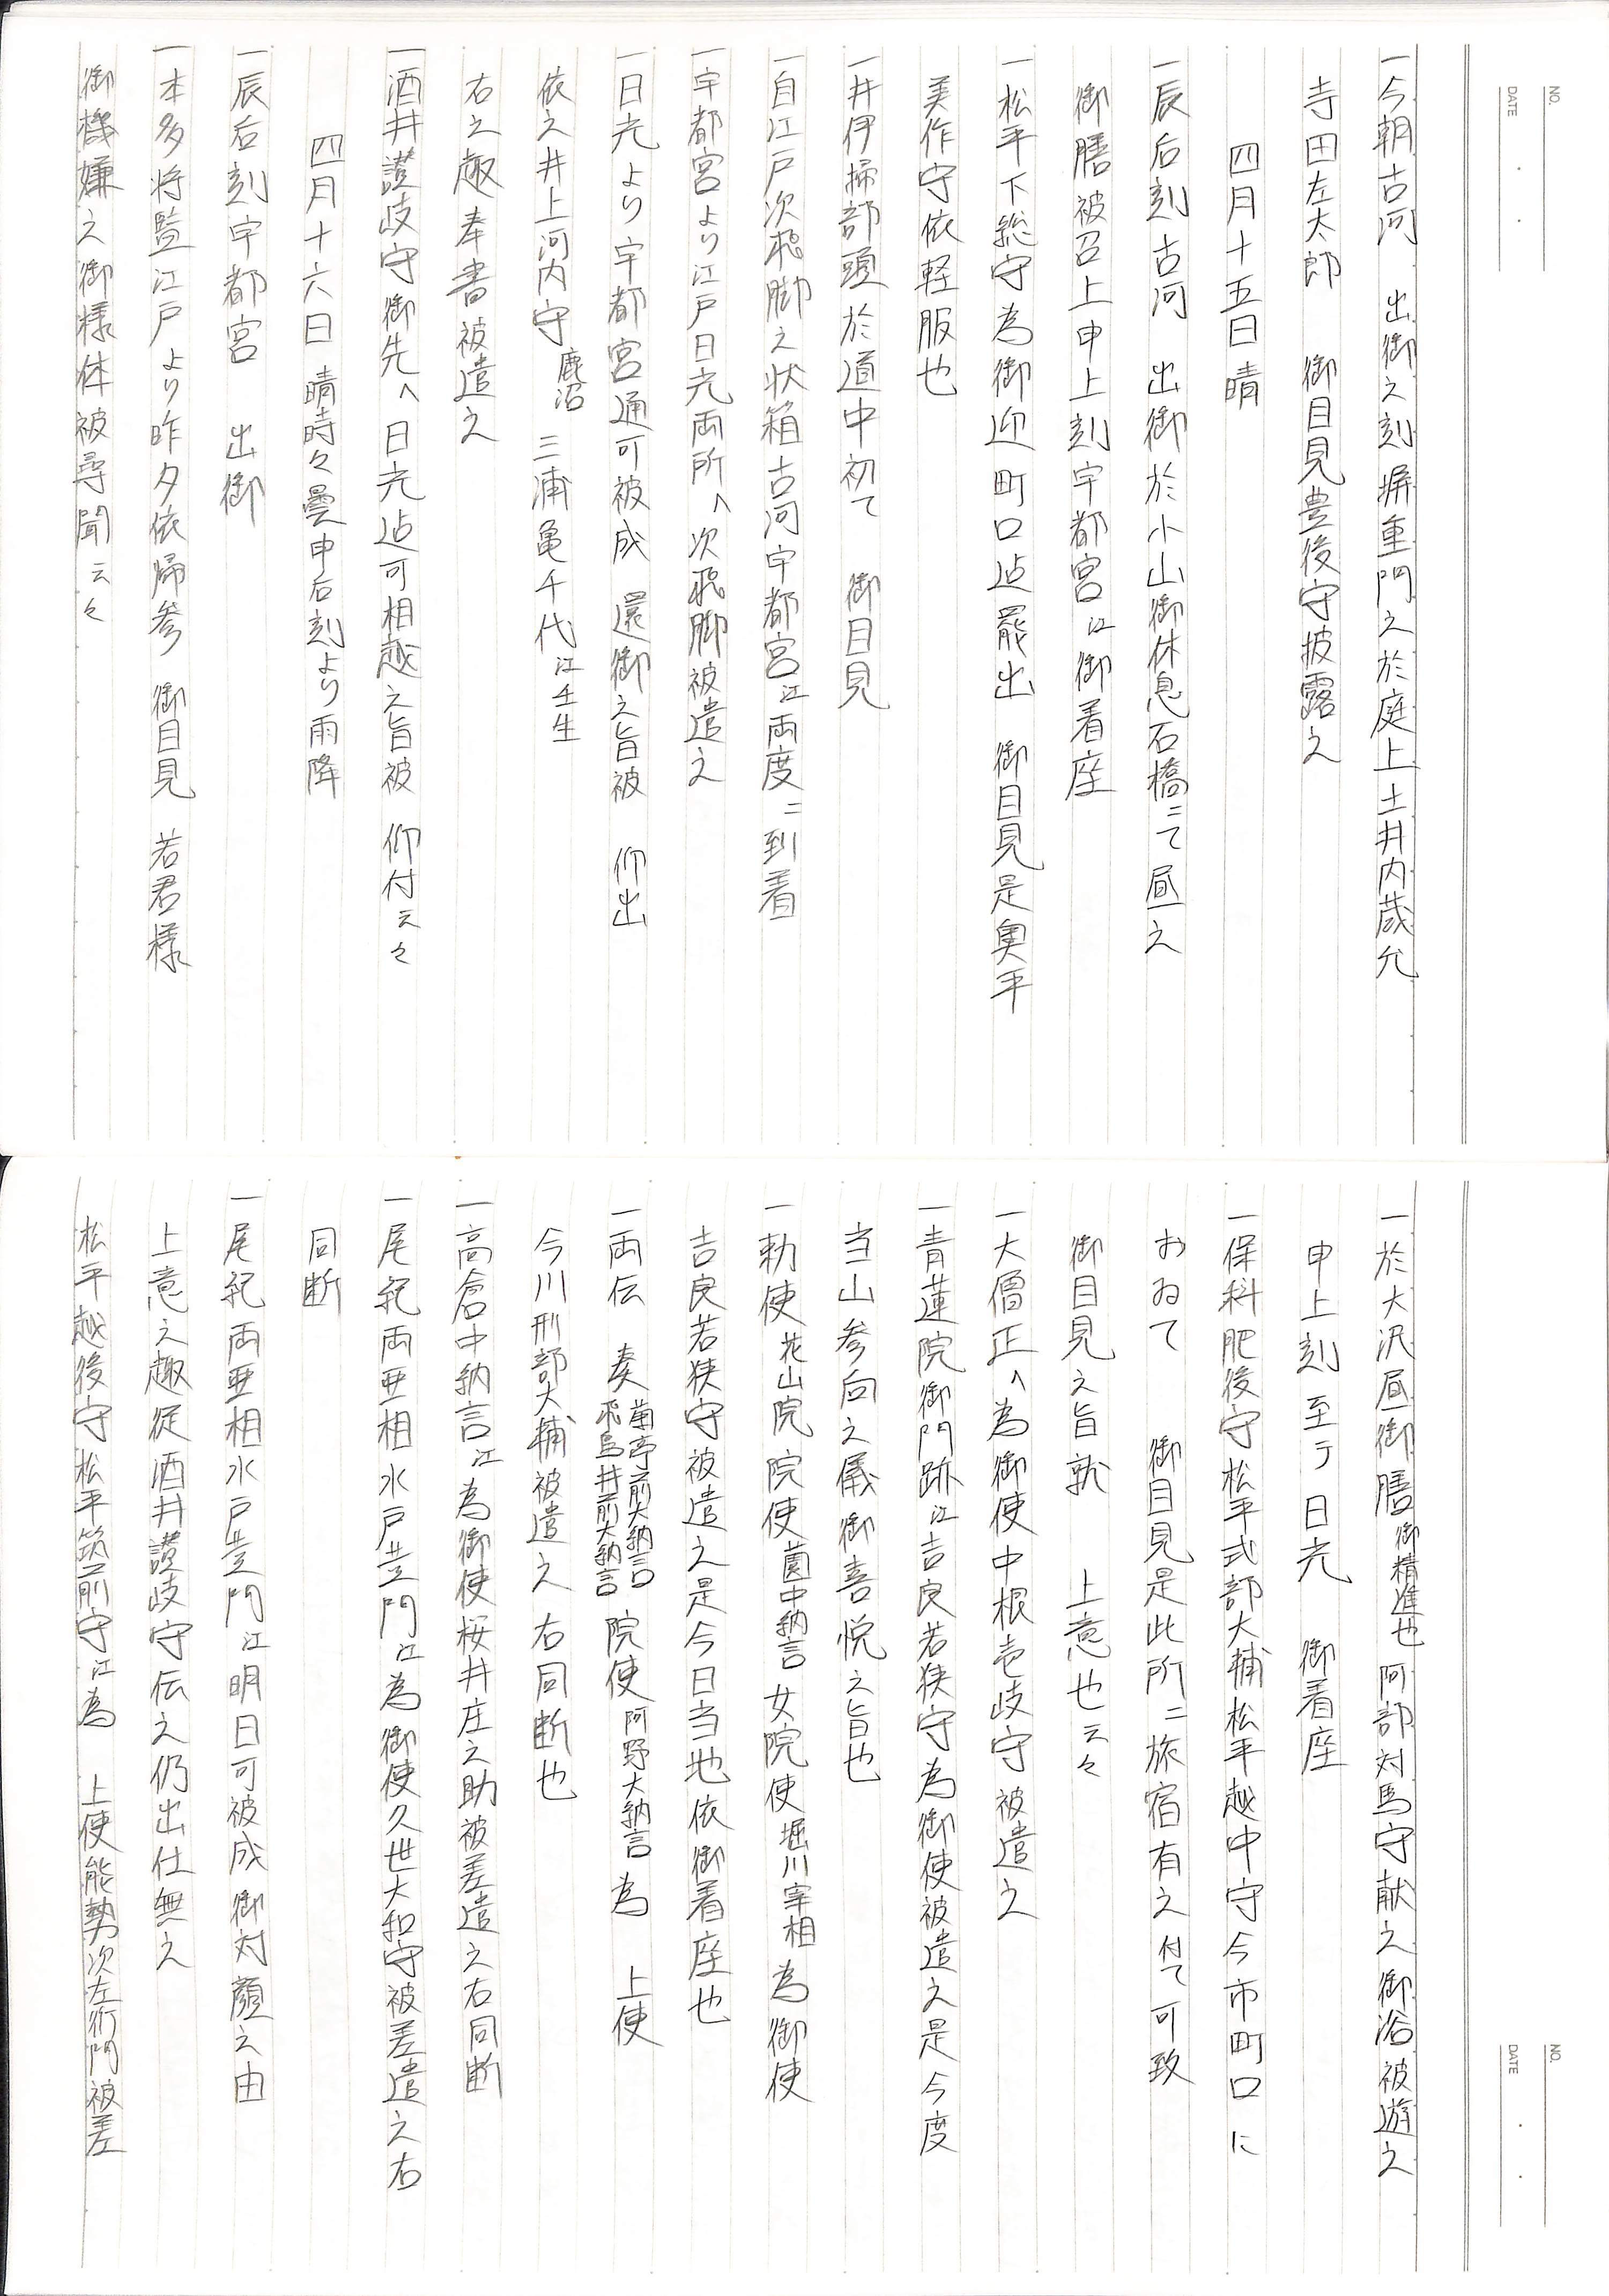 NO.
DATE
一今朝古河　出御之刻塀重門之於庭上土井内蔵允
寺田左太郎　御目見豊後守披露之
四月十五日晴
一辰后刻古河　出御於小山御休息石橋ニて昼之
御膳被召上申上刻宇都宮江御着座
一松平下総守為御迎町口迠罷出　御目見是奥平
美作守依軽服也
一井伊掃部頭於道中初て　御目見
一自江戸次飛脚之状箱古河宇都宮江両度ニ到着
一宇都宮より江戸日光両所へ次飛脚被遣之
一日光より宇都宮通可被成　還御之旨被　仰出
依之井上河内守鹿沼　三浦亀千代江壬生
右之趣奉書被遣之
一酒井讃岐守御先へ日光迠可相越之旨被　仰付云々
四月十六日　晴時々曇申后刻より雨降
一辰后刻宇都宮　出御
一本多将監江戸より昨夕依帰参　御目見　若君様
御機嫌之御様体被尋聞云々
NO.
DATE
一於大沢昼御膳御精進也　阿部対馬守献之御浴被遊之
申上刻至于日光　御着座
一保科肥後守松平式部大輔松平越中守今市町口に
おゐて　御目見是此所ニ旅宿有之付て可致
御目見之旨就　上意也云々
一大僧正へ為御使中根壱岐守被遣之
一青蓮院御門跡江吉良若狭守為御使被遣之是今度
当山参向之儀御喜悦之旨也
一勅使花山院　院使薗中納言　女院使堀川宰相　為御使
吉良若狭守被遣之是今日当地依御着座也
一両伝　奏菊亭前大納言飛鳥井前大納言　院使阿野大納言　為　上使
今川刑部大輔被遣之右同断也
一高倉中納言江為御使桜井庄之助被差遣之右同断
一尾紀両亜相水戸黄門江為御使久世大和守被差遣之右
同断
一尾紀両亜相水戸黄門江明日可被成御対顔之由
上意之趣従酒井讃岐守伝之仍出仕無之
松平越後守松平筑前守江為　上使能勢次左衛門被差